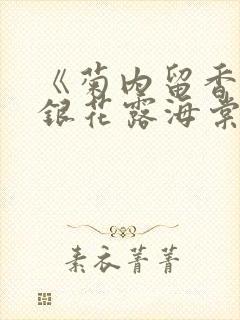 《菊内留香
銀花露海棠
素衣菁菁